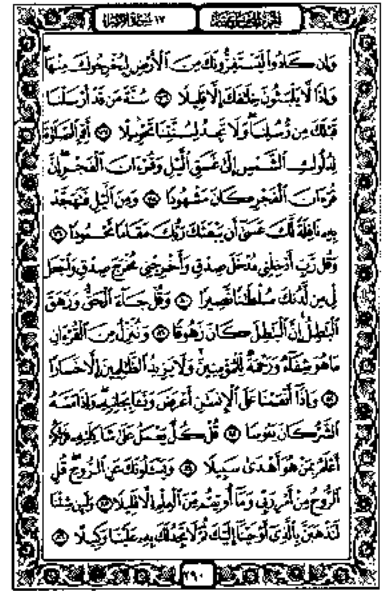 الجزء الخامس عشر ١٧ سورة الإسراء
وَإِن كَادُوا۟ لَيَسْتَفِزُّونَكَ مِنَ ٱلْأَرْضِ لِيُخْرِجُوكَ مِنْهَا
وَإِذًا لَّا يَلْبَثُونَ خِلَٰفَكَ إِلَّا قَلِيلًا ۝٧٦ سُنَّةَ مَن قَدْ أَرْسَلْنَا
قَبْلَكَ مِن رُّسُلِنَا وَلَا تَجِدُ لِسُنَّتِنَا تَحْوِيلًا ۝٧٧ أَقِمِ ٱلصَّلَوٰةَ
لِدُلُوكِ ٱلشَّمْسِ إِلَىٰ غَسَقِ ٱلَّيْلِ وَقُرْءَانَ ٱلْفَجْرِ إِنَّ
قُرْءَانَ ٱلْفَجْرِ كَانَ مَشْهُودًا ۝٧٨ وَمِنَ ٱلَّيْلِ فَتَهَجَّدْ
بِهِۦ نَافِلَةً لَّكَ عَسَىٰٓ أَن يَبْعَثَكَ رَبُّكَ مَقَامًا مَّحْمُودًا ۝٧٩
وَقُل رَّبِّ أَدْخِلْنِى مُدْخَلَ صِدْقٍ وَأَخْرِجْنِى مُخْرَجَ صِدْقٍ وَٱجْعَل
لِّى مِن لَّدُنكَ سُلْطَٰنًا نَّصِيرًا ۝٨٠ وَقُلْ جَآءَ ٱلْحَقُّ وَزَهَقَ
ٱلْبَٰطِلُ إِنَّ ٱلْبَٰطِلَ كَانَ زَهُوقًا ۝٨١ وَنُنَزِّلُ مِنَ ٱلْقُرْءَانِ
مَا هُوَ شِفَآءٌ وَرَحْمَةٌ لِّلْمُؤْمِنِينَ وَلَا يَزِيدُ ٱلظَّٰلِمِينَ إِلَّا خَسَارًا
۝٨٢ وَإِذَآ أَنْعَمْنَا عَلَى ٱلْإِنسَٰنِ أَعْرَضَ وَنَـَٔا بِجَانِبِهِۦ وَإِذَا مَسَّهُ
ٱلشَّرُّ كَانَ يَـُٔوسًا ۝٨٣ قُلْ كُلٌّ يَعْمَلُ عَلَىٰ شَاكِلَتِهِۦ فَرَبُّكُمْ
أَعْلَمُ بِمَنْ هُوَ أَهْدَىٰ سَبِيلًا ۝٨٤ وَيَسْـَٔلُونَكَ عَنِ ٱلرُّوحِ قُلِ
ٱلرُّوحُ مِنْ أَمْرِ رَبِّى وَمَآ أُوتِيتُم مِّنَ ٱلْعِلْمِ إِلَّا قَلِيلًا ۝٨٥ وَلَئِن شِئْنَا
لَنَذْهَبَنَّ بِٱلَّذِىٓ أَوْحَيْنَآ إِلَيْكَ ثُمَّ لَا تَجِدُ لَكَ بِهِۦ عَلَيْنَا وَكِيلًا ۝٨٦
٢٩٠